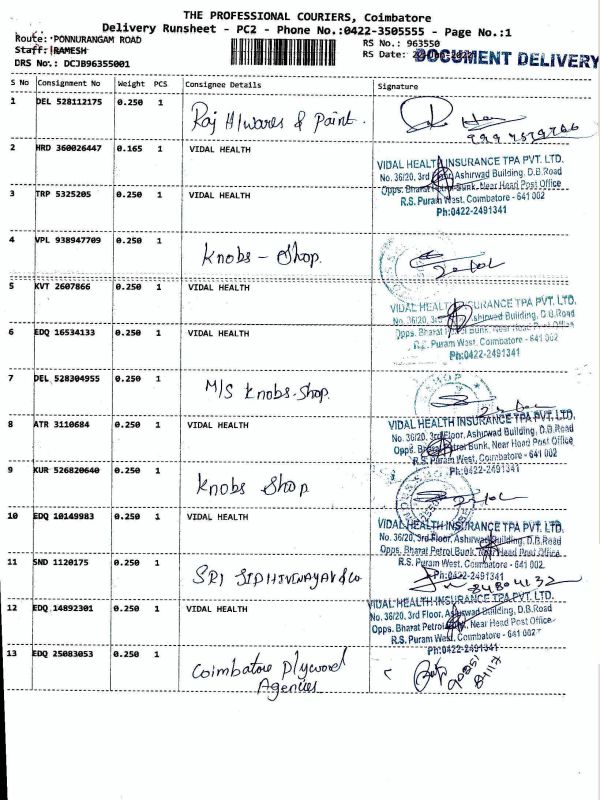 THE PROFESSIONAL COURIERS, Coimbatore
Delivery Runsheet - PC2 - Phone No.:0422-3505555 - Page No.:1
Route: PONNURANGAM ROAD
Staff: RAMESH
DRS No.: DCJB96355001
RS No.: 963550
RS Date:
DOCUMENT DELIVERY
S No Consignment No Weight PCS Consignee Details Signature
1 DEL 528112175 0.250 1 Raj H/wares & Paint.
2 HRD 360026447 0.165 1 VIDAL HEALTH
VIDAL HEALTH INSURANCE TPA PVT. LTD.
No. 36/20, 3rd Floor, Ashirwad Building, D.B.Road
Opps. Bharat Petrol Bunk, Near Head Post Office
R.S. Puram West, Coimbatore - 641 002
Ph:0422-2491341
3 TRP 5325205 0.250 1 VIDAL HEALTH
4 VPL 938947709 0.250 1 Knobs - Shop.
5 KVT 2607866 0.250 1 VIDAL HEALTH
VIDAL HEALTH INSURANCE TPA PVT. LTD.
No. 36/20, 3rd Floor, Ashirwad Building, D.B.Road
Opps. Bharat Petrol Bunk, Near Head Post Office
R.S. Puram West, Coimbatore - 641 002
Ph:0422-2491341
6 EDQ 16534133 0.250 1 VIDAL HEALTH
7 DEL 528304955 0.250 1 M/S Knobs-Shop.
8 ATR 3110684 0.250 1 VIDAL HEALTH
VIDAL HEALTH INSURANCE TPA PVT. LTD.
No. 36/20, 3rd Floor, Ashirwad Building, D.B.Road
Opps. Bharat Petrol Bunk, Near Head Post Office
R.S. Puram West, Coimbatore - 641 002
Ph:0422-2491341
9 KUR 526820640 0.250 1 Knobs Shop
10 EDQ 10149983 0.250 1 VIDAL HEALTH
VIDAL HEALTH INSURANCE TPA PVT. LTD.
No. 36/20, 3rd Floor, Ashirwad Building, D.B.Road
Opps. Bharat Petrol Bunk, Near Head Post Office
R.S. Puram West, Coimbatore - 641 002
Ph:0422-2491341
11 SND 1120175 0.250 1 SRI SIDHIVINAYAK & Co
84804132
12 EDQ 14892301 0.250 1 VIDAL HEALTH
VIDAL HEALTH INSURANCE TPA PVT. LTD.
No. 36/20, 3rd Floor, Ashirwad Building, D.B.Road
Opps. Bharat Petrol Bunk, Near Head Post Office
R.S. Puram West, Coimbatore - 641 002
Ph:0422-2491341
13 EDQ 25083053 0.250 1 Coimbatore Plywood
Agencies
90251
84117